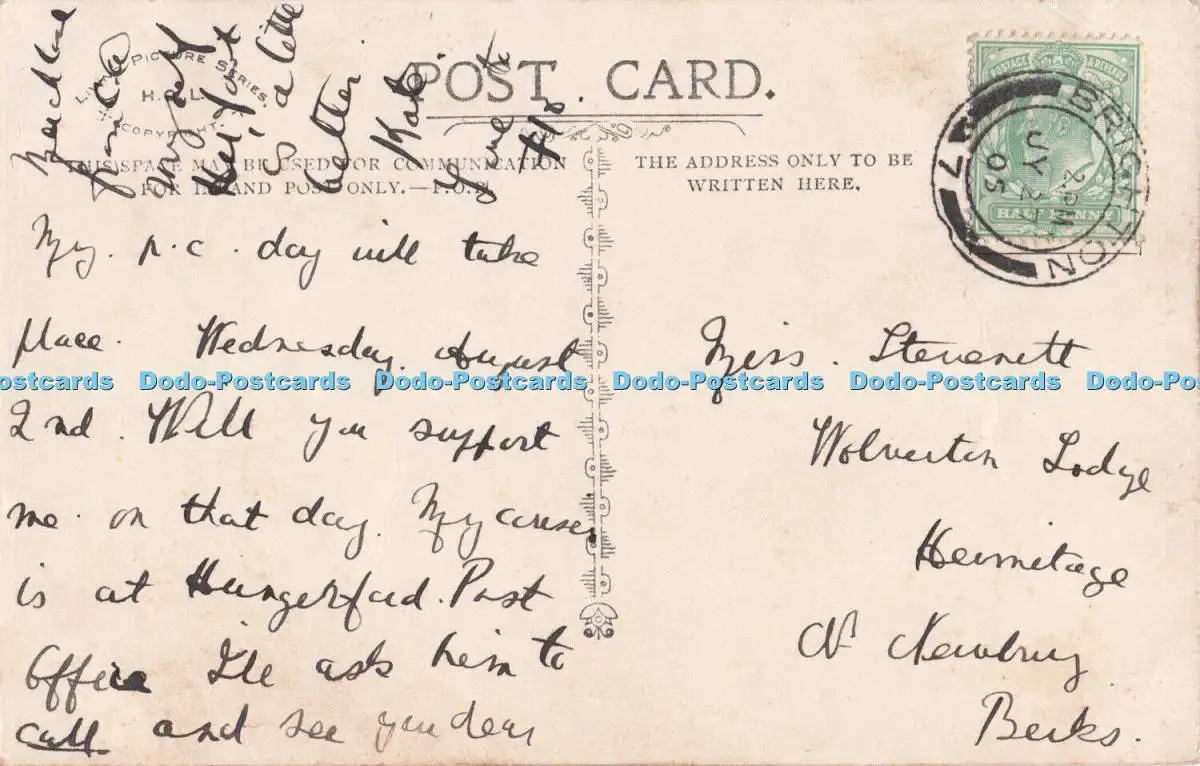 POST CARD.
THIS SPACE MAY BE USED FOR COMMUNICATION
FOR INLAND POST ONLY.—
THE ADDRESS ONLY TO BE
WRITTEN HERE.
PICTURE SERIES.
H.R.L.
COPYRIGHT.
POSTAGE
HALFPENNY
BRIGHTON
2.PM
JY 2
05
7
My. p.c. day will take
place. Wednesday. August
2nd. Will you support
me. on that day. My
is at Hungerford. Post
Office I'll ask him to
call and see you dear
much
myself
Kate
Miss. Stevenett
Wolverton Lodge
Hermitage
Nr Newbury
Berks.
Dodo-Postcards Dodo-Postcards Dodo-Postcards Dodo-Postcards